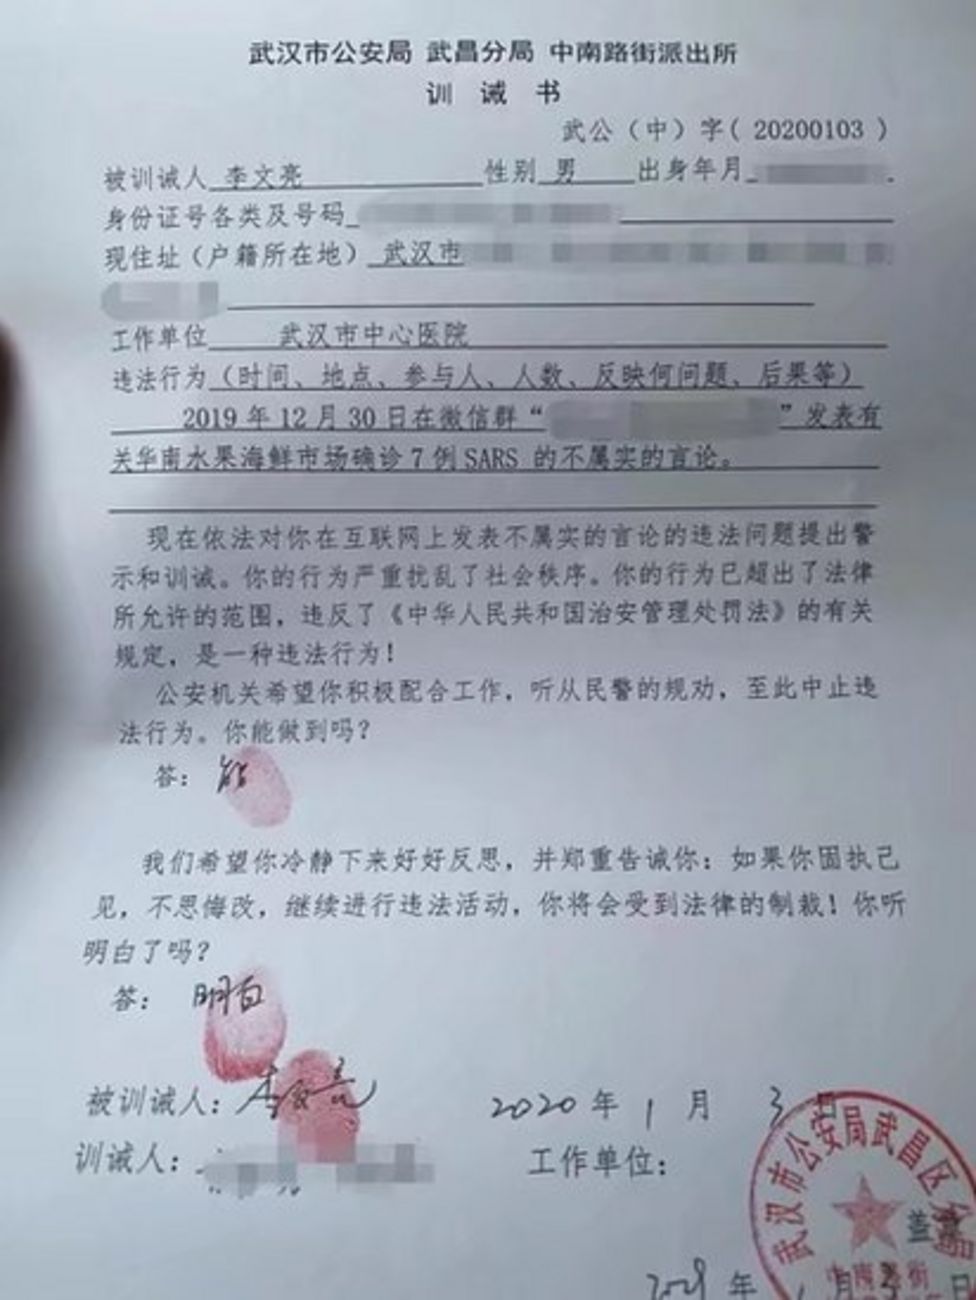 武汉市公安局 武昌分局 中南路街派出所
训 诫 书
武公（中）字（20200103）
被训诫人 李文亮 性别 男 出身年月
身份证号各类及号码
现住址（户籍所在地） 武汉市
工作单位 武汉市中心医院
违法行为（时间、地点、参与人、人数、反映何问题、后果等）
2019年12月30日在微信群“ ”发表有
关华南水果海鲜市场确诊7例SARS 的不属实的言论。
现在依法对你在互联网上发表不属实的言论的违法问题提出警
示和训诫。你的行为严重扰乱了社会秩序。你的行为已超出了法律
所允许的范围，违反了《中华人民共和国治安管理处罚法》的有关
规定，是一种违法行为！
公安机关希望你积极配合工作，听从民警的规劝，至此中止违
法行为。你能做到吗？
答：能
我们希望你冷静下来好好反思，并郑重告诫你：如果你固执己
见，不思悔改，继续进行违法活动，你将会受到法律的制裁！你听
明白了吗？
答：明白
被训诫人：李文亮 2020年 1 月 3 日
训诫人： 工作单位：
武汉市公安局武昌区分局
盖章
中南路街
年 月 日